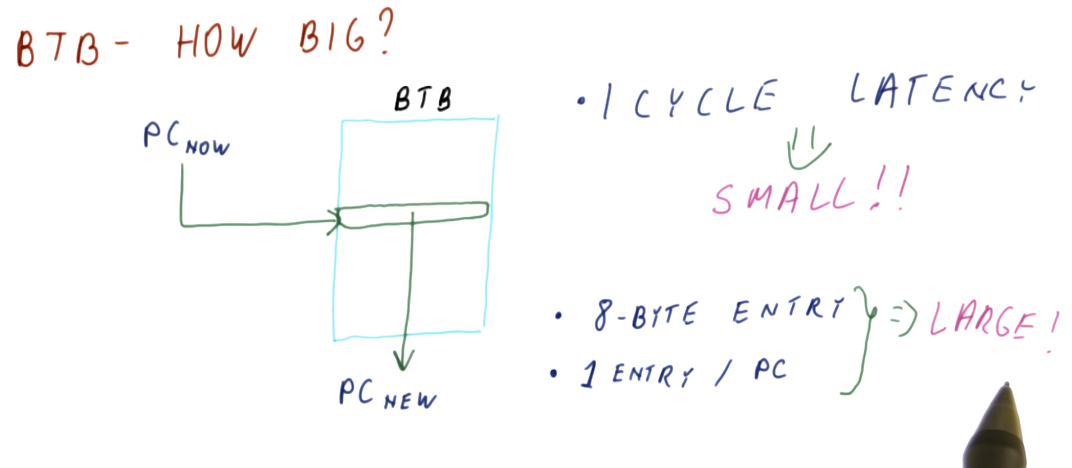 BTB - HOW BIG?
BTB
PC NOW
PC NEW
• 1 CYCLE LATENCY
SMALL!!
• 8-BYTE ENTRY
• 1 ENTRY / PC
=> LARGE!